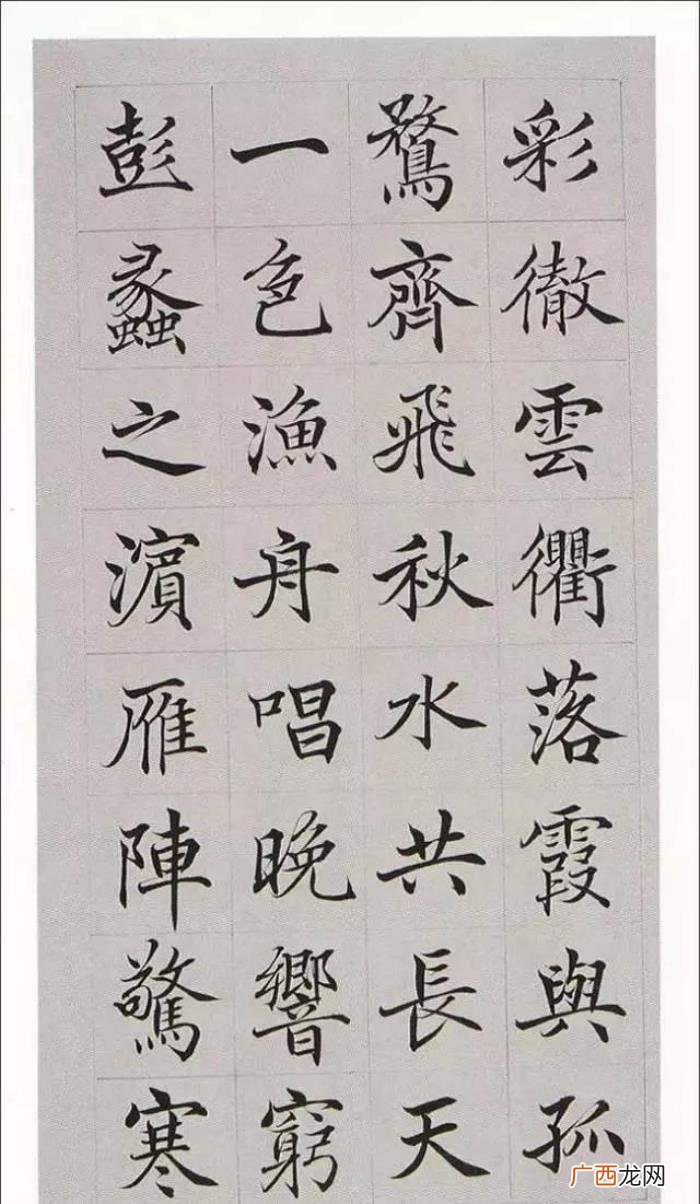 彩徹雲衢落霞與孤
鶩齊飛秋水共長天
一色漁舟唱晚響窮
彭蠡之濱雁陣驚寒
广西龙网